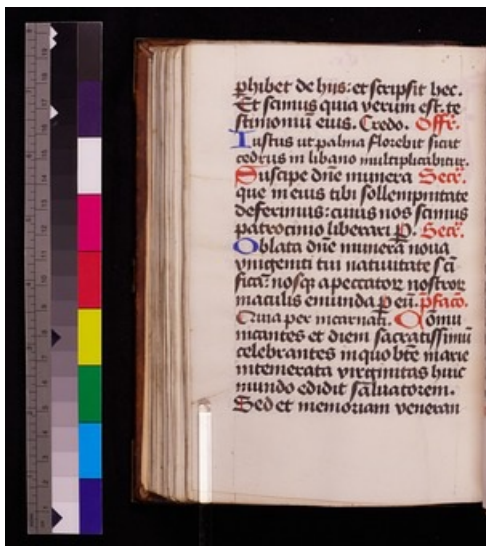 phibet de hiis: et scripsit hec.
Et scimus quia verum est. te
stimoniū eius. Credo. Offr̄.
Iustus ut palma florebit sicut
cedrus in libano multiplicabitur.
Suscipe dn̄e munera Secr̄.
que in eius tibi sollempnitate
deferimus: cuius nos scimus
patrocinio liberari ꝑ. Secr̄.
Oblata dn̄e munera noua
vnigeniti tui natiuitate sc̄i
fica: nosqꝫ a peccatorꝫ nostrorꝫ
maculis emunda ꝑ eū. p̄faco.
Quia per incarnati. Cōmu
nicantes et diem sacratissimū
celebrantes in quo bt̄e marie
intemerata virginitas huic
mundo edidit saluatorem.
Sed et memoriam veneran